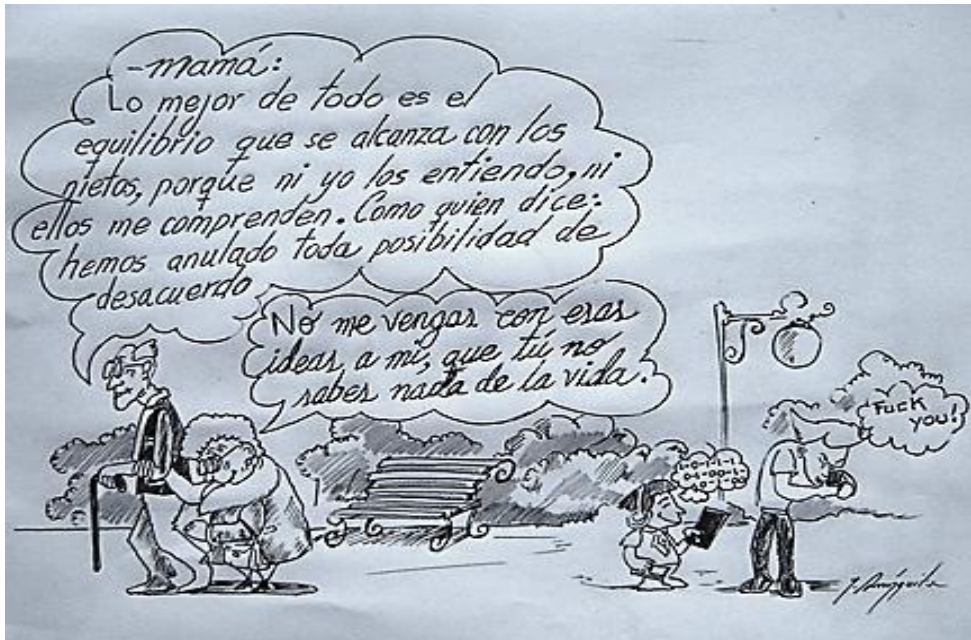 -mamá:
Lo mejor de todo es el
equilibrio que se alcanza con los
nietos, porque ni yo los entiendo, ni
ellos me comprenden. Como quien dice:
hemos anulado toda posibilidad de
desacuerdo
No me vengas con esas
ideas a mí, que tú no
sabes nada de la vida.
Fuck
you!